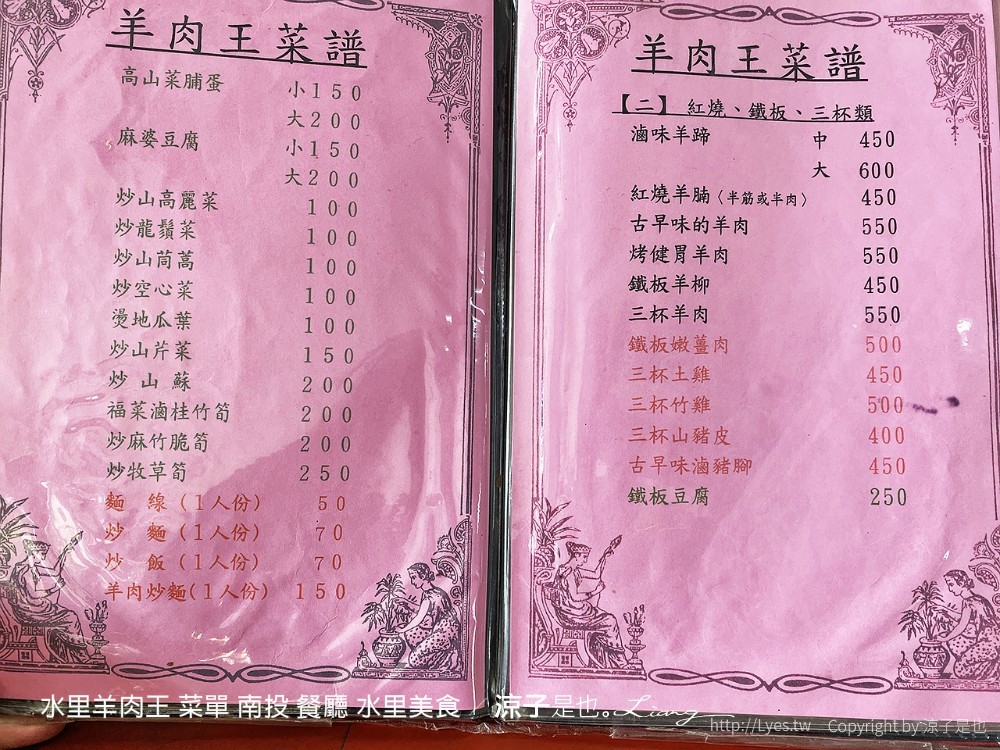 羊肉王菜譜
高山菜脯蛋 小150
大200
麻婆豆腐 小150
大200
炒山高麗菜 100
炒龍鬚菜 100
炒山茼蒿 100
炒空心菜 100
燙地瓜葉 100
炒山芹菜 150
炒山蘇 200
福菜滷桂竹筍 200
炒麻竹脆筍 200
炒牧草筍 250
麵 線(1人份) 50
炒 麵(1人份) 70
炒 飯(1人份) 70
羊肉炒麵(1人份) 150
羊肉王菜譜
【二】 紅燒、鐵板、三杯類
滷味羊蹄 中 450
大 600
紅燒羊腩〈半筋或半肉〉 450
古早味的羊肉 550
烤健胃羊肉 550
鐵板羊柳 450
三杯羊肉 550
鐵板嫩薑肉 500
三杯土雞 450
三杯竹雞 500
三杯山豬皮 400
古早味滷豬腳 450
鐵板豆腐 250
水里羊肉王 菜單 南投 餐廳 水里美食 / 涼子是也。Liang
http://Lyes.tw Copyright by 涼子是也